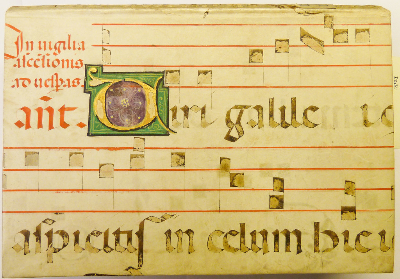 In vigilia
ascensionis
ad vesperas.
ant. Viri galile
aspicitis in celum hic